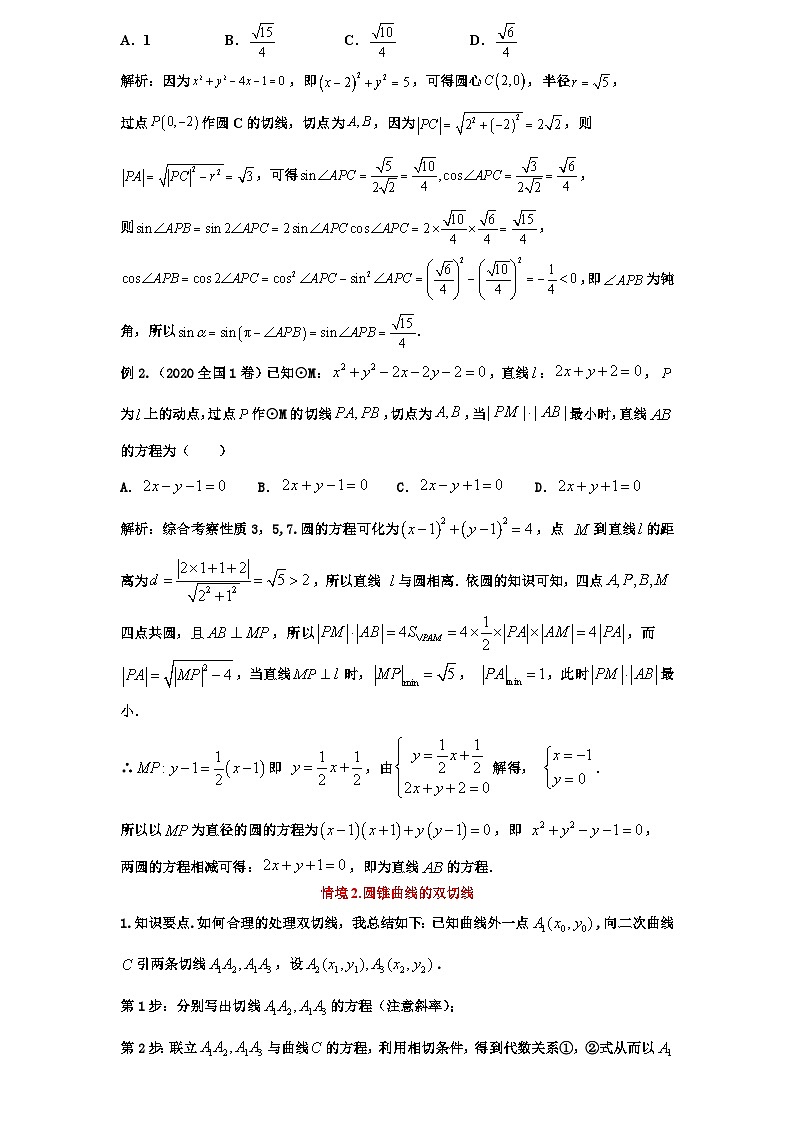 A. 1 B. $\frac{\sqrt{15}}{4}$ C. $\frac{\sqrt{10}}{4}$ D. $\frac{\sqrt{6}}{4}$
解析：因为 $x^2+y^2-4x-1=0$，即 $(x-2)^2+y^2=5$，可得圆心 $C(2,0)$，半径 $r=\sqrt{5}$，
过点 $P(0,-2)$ 作圆 C 的切线，切点为 $A,B$，因为 $|PC|=\sqrt{2^2+(-2)^2}=2\sqrt{2}$，则
$|PA|=\sqrt{|PC|^2-r^2}=\sqrt{3}$，可得 $\sin\angle APC=\frac{\sqrt{5}}{2\sqrt{2}}=\frac{\sqrt{10}}{4},\cos\angle APC=\frac{\sqrt{3}}{2\sqrt{2}}=\frac{\sqrt{6}}{4}$，
则 $\sin\angle APB=\sin 2\angle APC=2\sin\angle APC\cos\angle APC=2\times\frac{\sqrt{10}}{4}\times\frac{\sqrt{6}}{4}=\frac{\sqrt{15}}{4}$，
$\cos\angle APB=\cos 2\angle APC=\cos^2\angle APC-\sin^2\angle APC=\left(\frac{\sqrt{6}}{4}\right)^2-\left(\frac{\sqrt{10}}{4}\right)^2=-\frac{1}{4}<0$，即 $\angle APB$ 为钝
角，所以 $\sin\alpha=\sin(\pi-\angle APB)=\sin\angle APB=\frac{\sqrt{15}}{4}$.
例 2.（2020 全国 1 卷）已知⊙M：$x^2+y^2-2x-2y-2=0$，直线 $l$：$2x+y+2=0$，$P$
为 $l$ 上的动点，过点 $P$ 作⊙M 的切线 $PA,PB$，切点为 $A,B$，当 $|PM|\cdot|AB|$ 最小时，直线 $AB$
的方程为（ ）
A. $2x-y-1=0$ B. $2x+y-1=0$ C. $2x-y+1=0$ D. $2x+y+1=0$
解析：综合考察性质 3，5,7.圆的方程可化为 $(x-1)^2+(y-1)^2=4$，点 $M$ 到直线 $l$ 的距
离为 $d=\frac{|2\times1+1+2|}{\sqrt{2^2+1^2}}=\sqrt{5}>2$，所以直线 $l$ 与圆相离．依圆的知识可知，四点 $A,P,B,M$
四点共圆，且 $AB\perp MP$，所以 $|PM|\cdot|AB|=4S_{\triangledown PAM}=4\times\frac{1}{2}\times|PA|\times|AM|=4|PA|$，而
$|PA|=\sqrt{|MP|^2-4}$，当直线 $MP\perp l$ 时，$|MP|_{\min}=\sqrt{5}$，$|PA|_{\min}=1$，此时 $|PM|\cdot|AB|$ 最
小．
∴ $MP:y-1=\frac{1}{2}(x-1)$ 即 $y=\frac{1}{2}x+\frac{1}{2}$，由 $\begin{cases}y=\frac{1}{2}x+\frac{1}{2}\\2x+y+2=0\end{cases}$ 解得，$\begin{cases}x=-1\\y=0\end{cases}$.
所以以 $MP$ 为直径的圆的方程为 $(x-1)(x+1)+y(y-1)=0$，即 $x^2+y^2-y-1=0$，
两圆的方程相减可得：$2x+y+1=0$，即为直线 $AB$ 的方程．
情境 2.圆锥曲线的双切线
1.知识要点.如何合理的处理双切线，我总结如下：已知曲线外一点 $A_1(x_0,y_0)$,向二次曲线
$C$ 引两条切线 $A_1A_2,A_1A_3$，设 $A_2(x_1,y_1),A_3(x_2,y_2)$.
第 1 步：分别写出切线 $A_1A_2,A_1A_3$ 的方程（注意斜率）；
第 2 步：联立 $A_1A_2,A_1A_3$ 与曲线 $C$ 的方程，利用相切条件，得到代数关系①，②式从而以 $A_1$